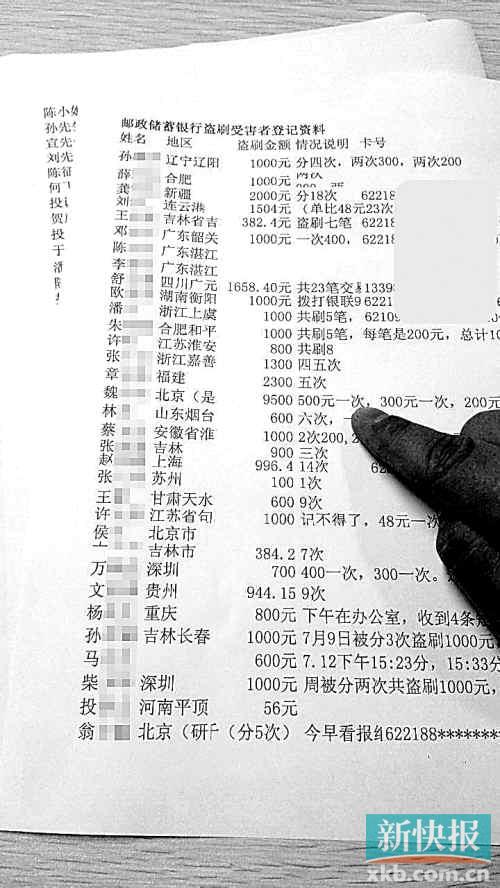 陈小
孙先
宣先
刘先
陈征
何
投
贺
投
于
潘
邮政储蓄银行盗刷受害者登记资料
姓名 地区 盗刷金额 情况说明 卡号
孙 辽宁辽阳 1000元 分四次，两次300，两次200
薛 合肥 1000元 两次
龚 新疆 2000元 分18次 62218
刘 连云港 1504元 (单比48元23次
王 吉林省吉 382.4元 盗刷七笔 62218
邓 广东韶关 1000元 一次400, 62218
陈 广东湛江
李 广东湛江
舒 四川广元 1658.40元 共23笔交易1339
欧 湖南衡阳 1000元 拨打银联9 6221
潘 浙江上虞 1000 共刷5笔, 62109
朱 合肥和平 1000 共刷5笔，每笔是200元，总计10
许 江苏淮安 800 共刷8
张 浙江嘉善 1300 四五次
章 福建 2300 五次
魏 北京（是 9500 500元一次，300元一次，200元
林 山东烟台 600 六次，
蔡 安徽省淮 1000 2次200,
张 吉林 900 三次
赵 上海 996.4 14次 62
张 苏州 100 1次
王 甘肃天水 600 9次
许 江苏省句 1000 记不得了，48元一次
侯 北京市
吉林市 384.2 7次
万 深圳 700 400一次，300一次。
文 贵州 944.15 9次
杨 重庆 800元 下午在办公室，收到4条短
孙 吉林长春 1000元 7月9日被分3次盗刷1000元，
马 600元 7.12下午15:23分，15:33分
柴 深圳 1000元 周被分两次共盗刷1000元，
投 河南平顶 56元
翁 北京（研 （分5次） 今早看报纸622188********
新快报
xkb.com.cn